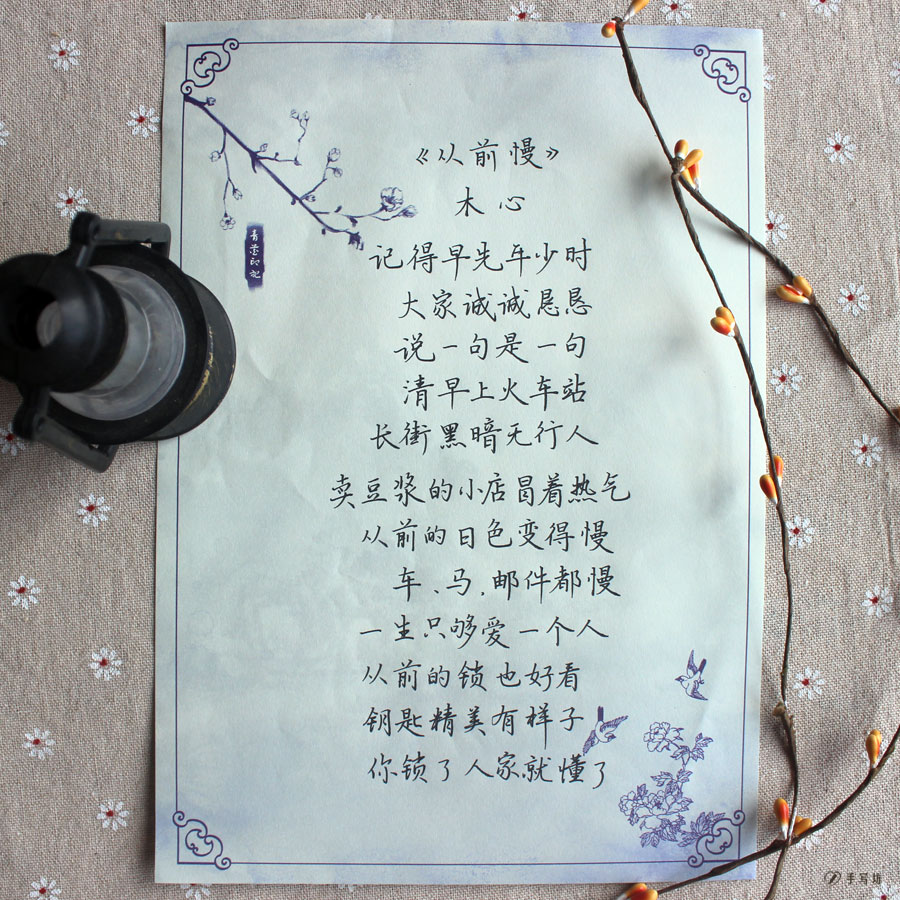 《从前慢》
木心
记得早先年少时
大家诚诚恳恳
说一句是一句
清早上火车站
长街黑暗无行人
卖豆浆的小店冒着热气
从前的日色变得慢
车、马,邮件都慢
一生只够爱一个人
从前的锁也好看
钥匙精美有样子
你锁了人家就懂了